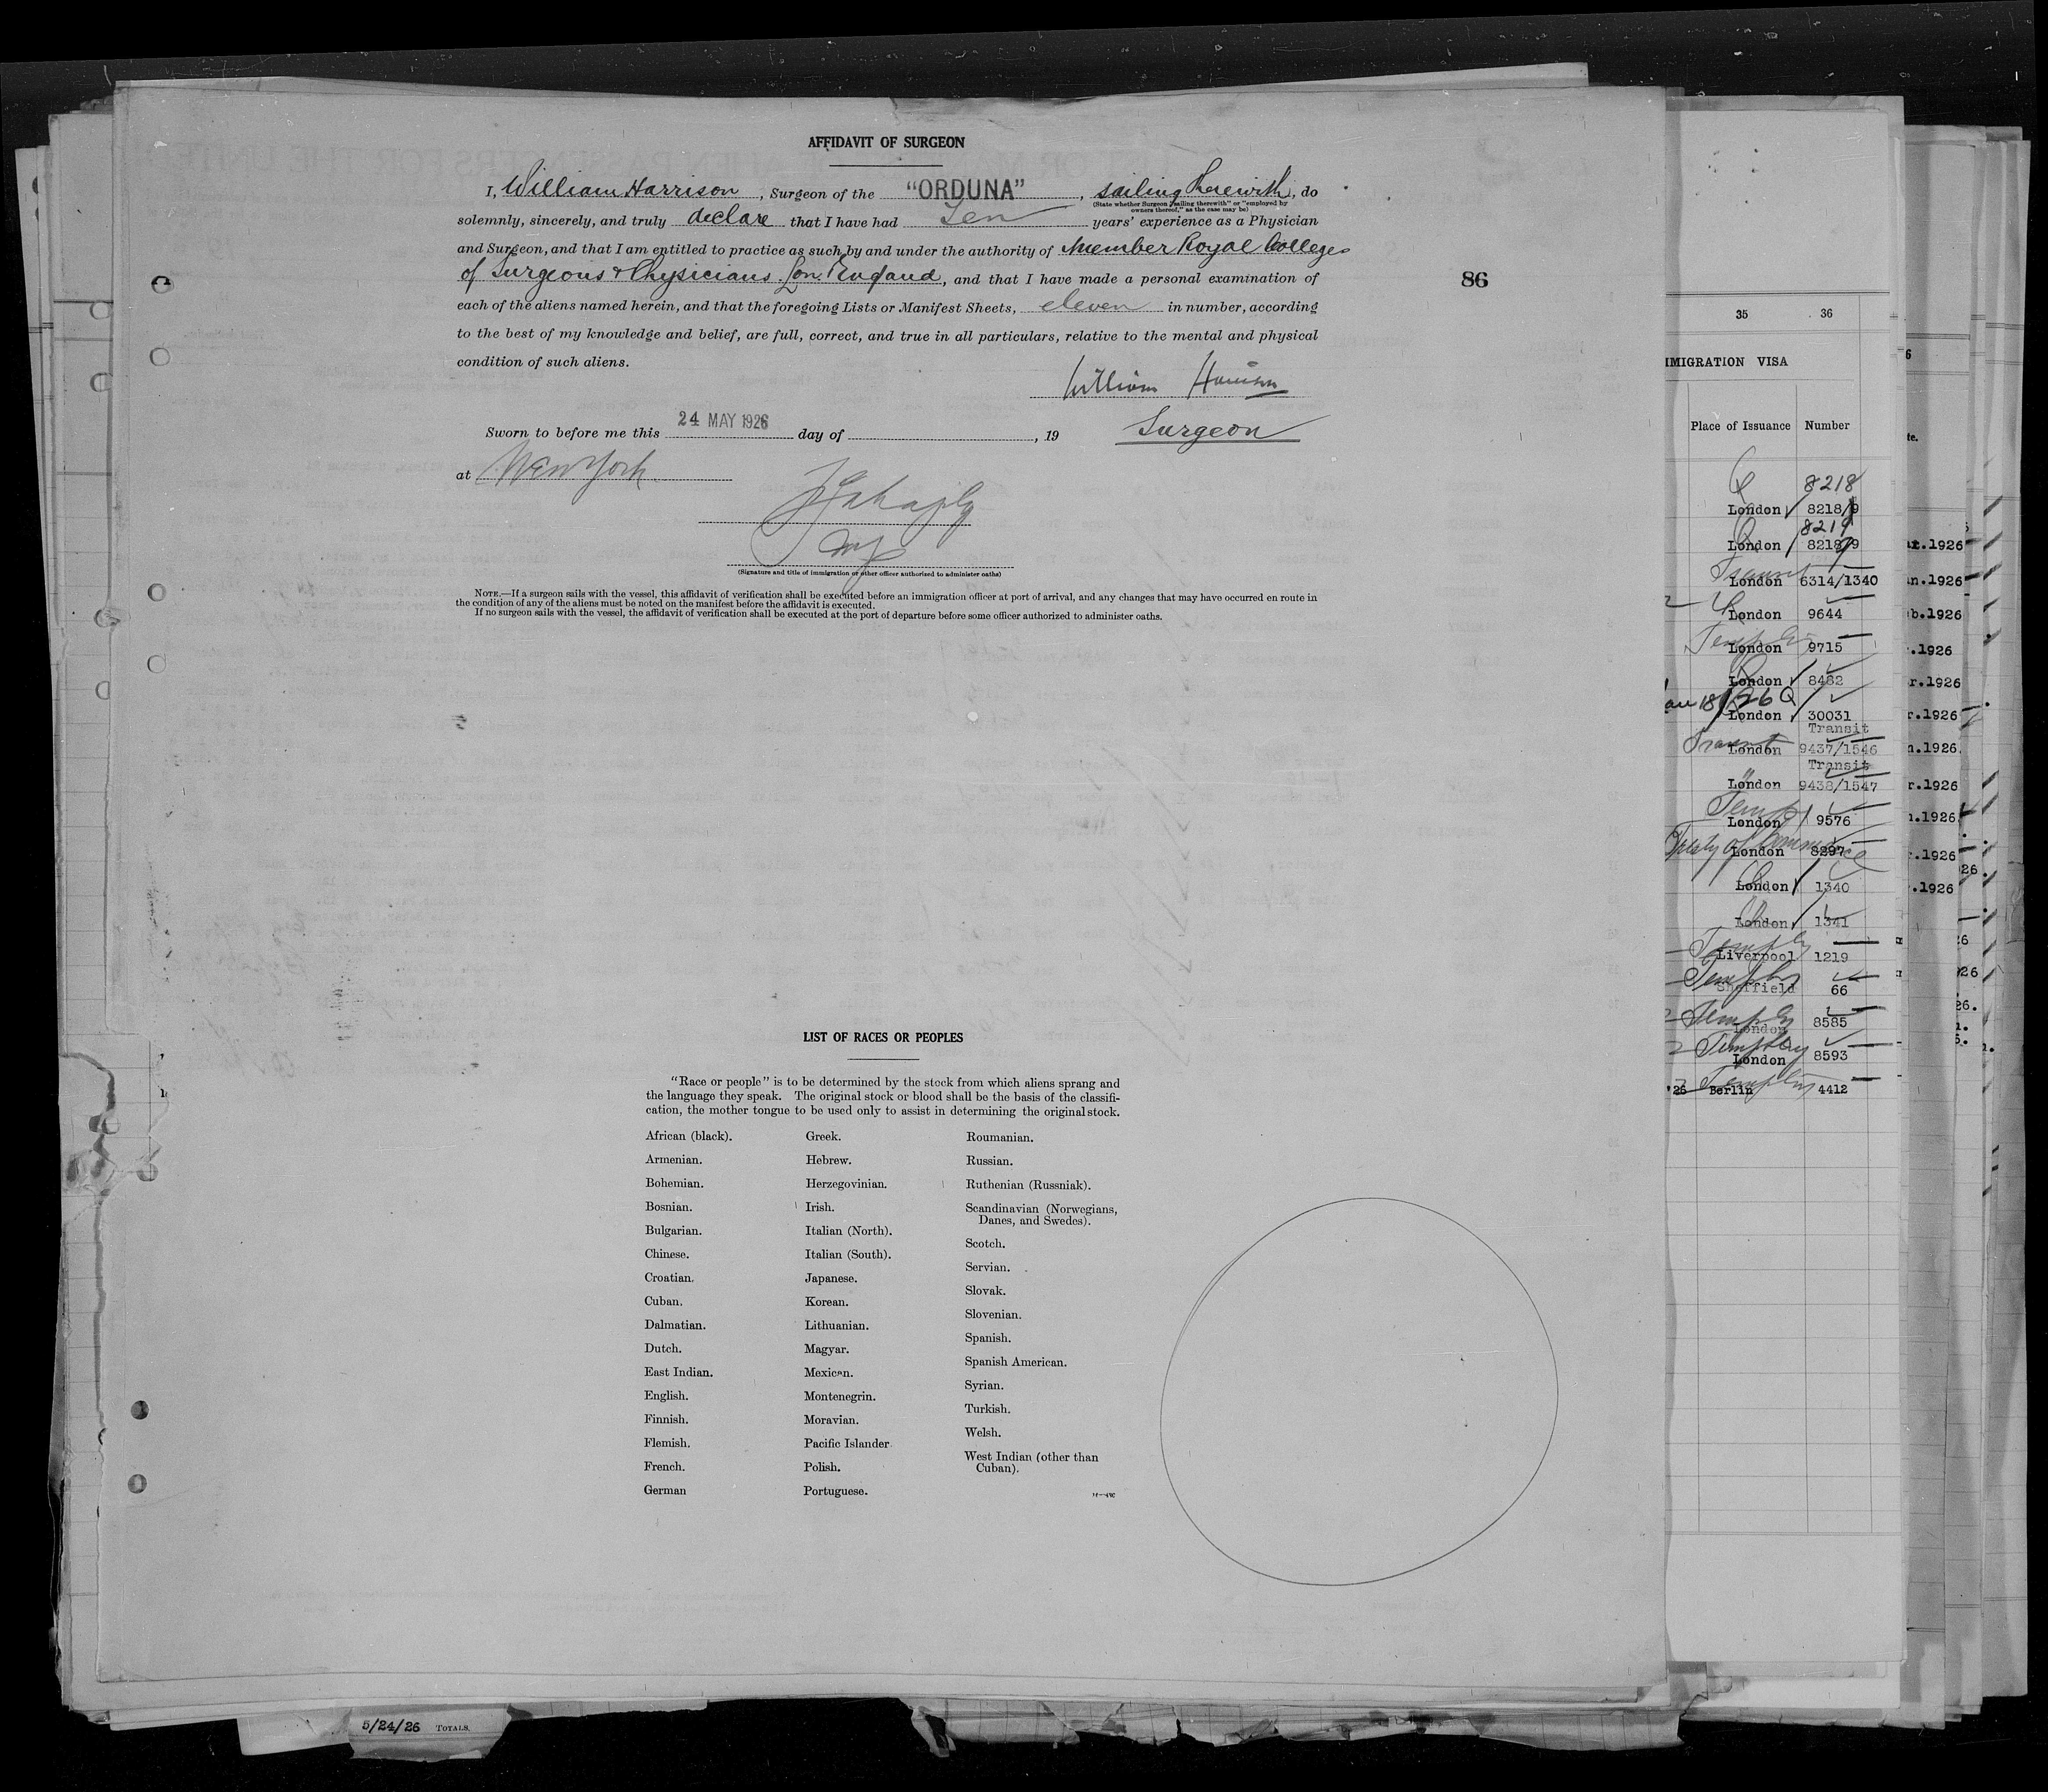 AFFIDAVIT OF SURGEON
I, William Harrison, Surgeon of the "ORDUNA", sailing therewith, do
(State whether Surgeon "sailing therewith" or "employed by
owners thereof," as the case may be)
solemnly, sincerely, and truly declare that I have had Ten years' experience as a Physician
and Surgeon, and that I am entitled to practice as such by and under the authority of Member Royal Colleges
of Surgeons & Physicians. Lon. England, and that I have made a personal examination of
86
each of the aliens named herein, and that the foregoing Lists or Manifest Sheets, eleven in number, according
to the best of my knowledge and belief, are full, correct, and true in all particulars, relative to the mental and physical
condition of such aliens.
William Harrison
Sworn to before me this 24 MAY 1926 day of , 19
Surgeon
at New York
(Signature and title of immigration or other officer authorized to administer oaths)
NOTE.—If a surgeon sails with the vessel, this affidavit of verification shall be executed before an immigration officer at port of arrival, and any changes that may have occurred en route in
the condition of any of the aliens must be noted on the manifest before the affidavit is executed.
If no surgeon sails with the vessel, the affidavit of verification shall be executed at the port of departure before some officer authorized to administer oaths.
LIST OF RACES OR PEOPLES
"Race or people" is to be determined by the stock from which aliens sprang and
the language they speak. The original stock or blood shall be the basis of the classifi-
cation, the mother tongue to be used only to assist in determining the original stock.
African (black).
Armenian.
Bohemian.
Bosnian.
Bulgarian.
Chinese.
Croatian.
Cuban.
Dalmatian.
Dutch.
East Indian.
English.
Finnish.
Flemish.
French.
German
Greek.
Hebrew.
Herzegovinian.
Irish.
Italian (North).
Italian (South).
Japanese.
Korean.
Lithuanian.
Magyar.
Mexican.
Montenegrin.
Moravian.
Pacific Islander
Polish.
Portuguese.
Roumanian.
Russian.
Ruthenian (Russniak).
Scandinavian (Norwegians,
Danes, and Swedes).
Scotch.
Servian.
Slovak.
Slovenian.
Spanish.
Spanish American.
Syrian.
Turkish.
Welsh.
West Indian (other than
Cuban).
5/24/26 TOTALS.
35 36
IMMIGRATION VISA
Place of Issuance Number
Q 8218
London 8218/9
Q 8219
London 8218/9
Transit
London 6314/1340
Q
London 9644
London 9715
London 8482
18/26 Q
London 30031
Transit
Transit London 9437/1546
Transit
"
London 9438/1547
Temp
London 9576
Treaty of Commerce
London 8297
London 1340
London 1341
Liverpool 1219
Sheffield 66
London 8585
London 8593
'26 Berlin 4412
.1926
.1926
.1926
.1926
.1926
.1926
.1926
.1926
.1926
.1926
.1926